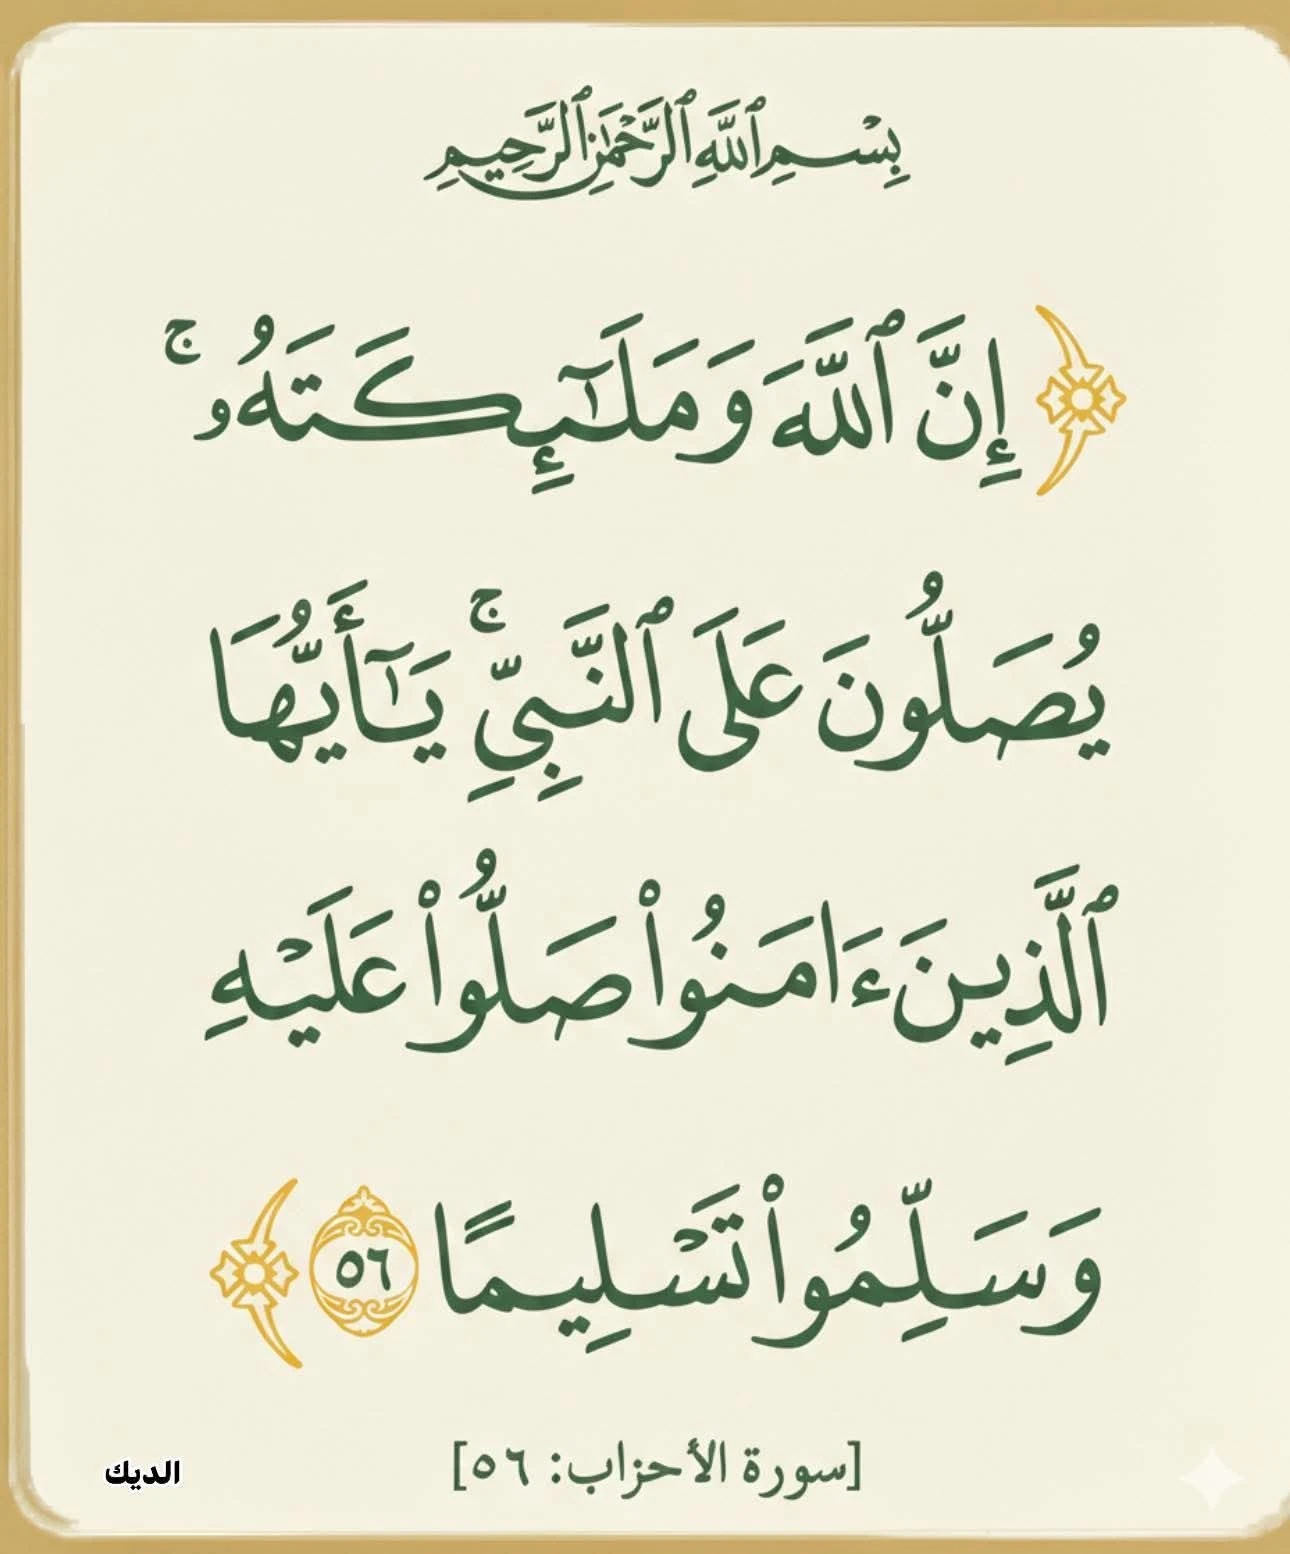 بِسْمِ ٱللَّهِ ٱلرَّحْمَٰنِ ٱلرَّحِيمِ
﴿إِنَّ ٱللَّهَ وَمَلَـٰٓئِكَتَهُۥ ۚ
يُصَلُّونَ عَلَى ٱلنَّبِىِّ ۚ يَـٰٓأَيُّهَا
ٱلَّذِينَ ءَامَنُوا۟ صَلُّوا۟ عَلَيْهِ
وَسَلِّمُوا۟ تَسْلِيمًا ٥٦﴾
[سورة الأحزاب: ٥٦]
الديك